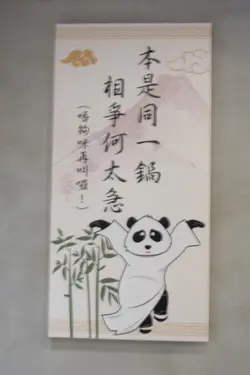 本是同一鍋
相爭何太急
（唔夠咪再叫囉！）